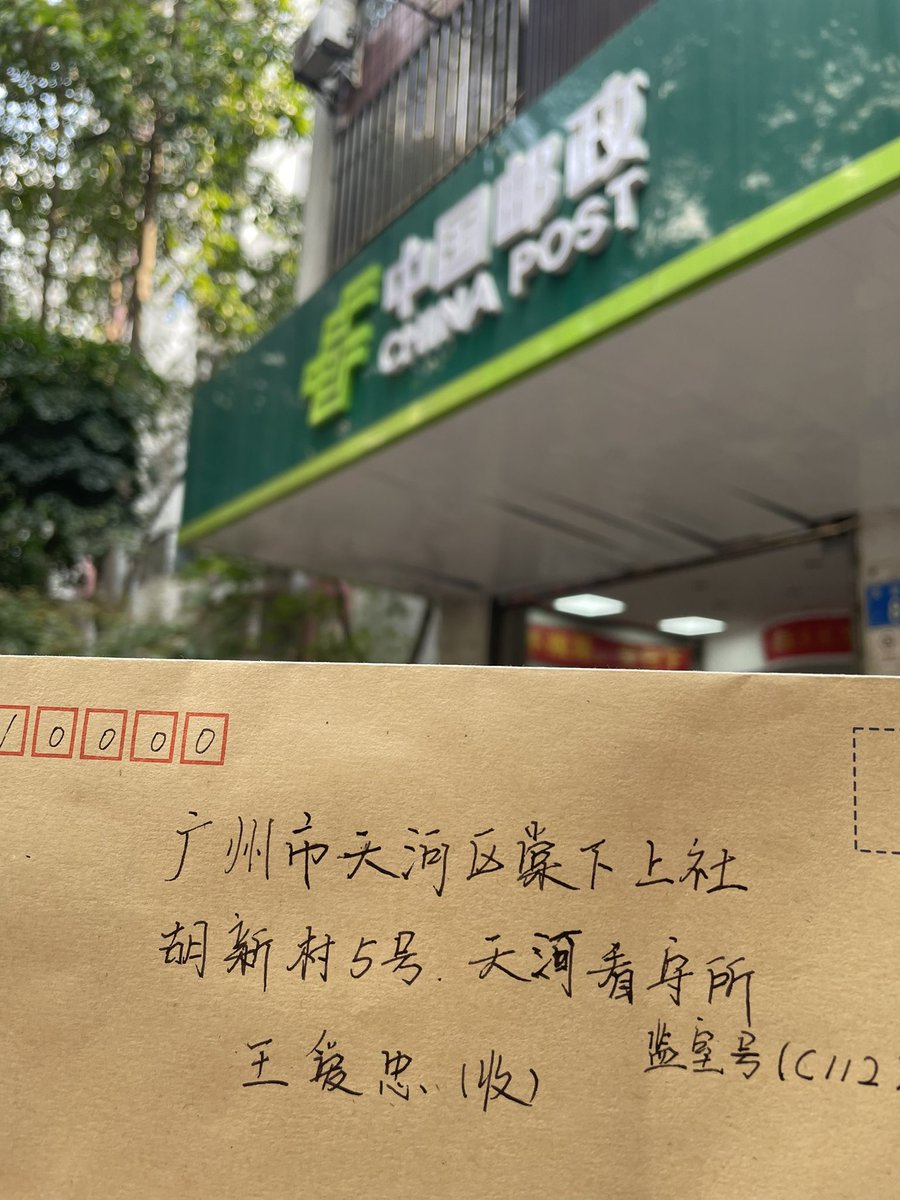 中国邮政
CHINA POST
10000
广州市天河区棠下上社
胡新村5号. 天河看守所
王爱忠(收)
监室号(C112